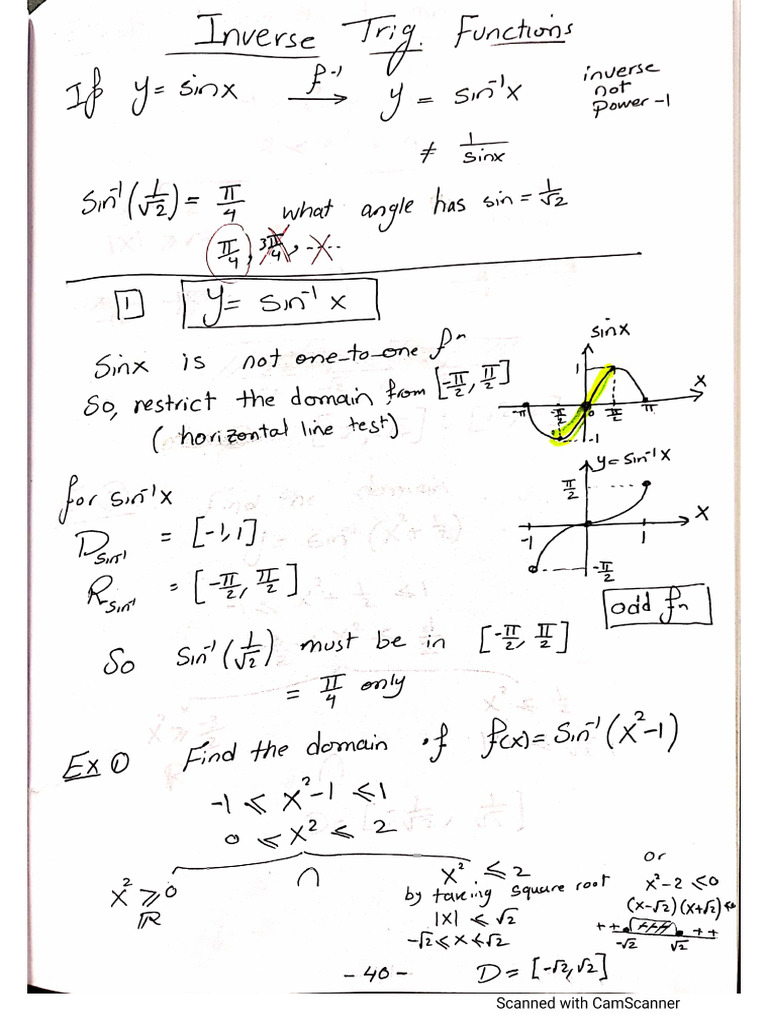 Inverse Trig. Functions
If y = sinx f⁻¹ → y = sin⁻¹x inverse not Power -1
≠ 1/sinx
Sin⁻¹(1/√2) = π/4 what angle has sin = 1/√2
π/4, 3π/4, -....
1 y = sin⁻¹ x
Sinx is not one-to-one fⁿ
So, restrict the domain from [-π/2, π/2]
(horizontal line test)
sinx
1
x
-π -π/2 0 π/2 π
-1
y = sin⁻¹x
π/2
x
-1 1
-π/2
odd fn
for sin⁻¹x
D sin⁻¹ = [-1,1]
R sin⁻¹ = [-π/2, π/2]
So sin⁻¹(1/√2) must be in [-π/2, π/2]
= π/4 only
Ex ① Find the domain of f(x) = Sin⁻¹(x²-1)
-1 ≤ x²-1 ≤ 1
0 ≤ x² ≤ 2
x² ≥ 0
ℝ
∩
x² ≤ 2
by taking square root
|x| ≤ √2
-√2 ≤ x ≤ √2
or
x²-2 ≤ 0
(x-√2)(x+√2) ≤ 0
++ ++
-√2 √2
D = [-√2, √2]
- 40 -
Scanned with CamScanner